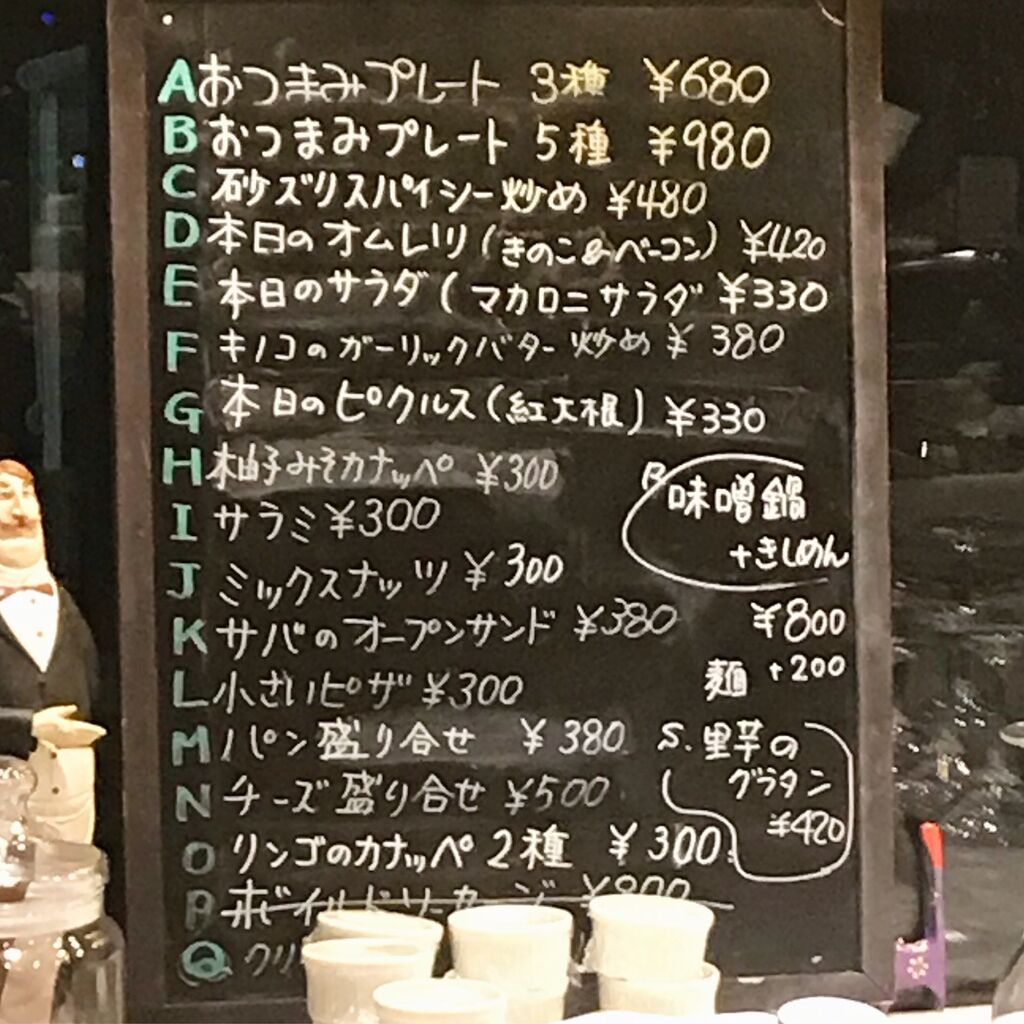 A おつまみプレート 3種 ¥680
B おつまみプレート 5種 ¥980
C 砂ズリスパイシー炒め ¥480
D 本日のオムレツ(きのこ&ベーコン) ¥420
E 本日のサラダ(マカロニサラダ ¥330
F キノコのガーリックバター炒め ¥380
G 本日のピクルス(紅大根) ¥330
H 柚子みそカナッペ ¥300
I サラミ ¥300
J ミックスナッツ ¥300
K サバのオープンサンド ¥380
L 小さいピザ ¥300
M パン盛り合せ ¥380
N チーズ盛り合せ ¥500
O リンゴのカナッペ2種 ¥300
P ボイルドソーセージ ¥800
Q クリ
R 味噌鍋
+きしめん
¥800
麺 +200
S. 里芋の
グラタン
¥420